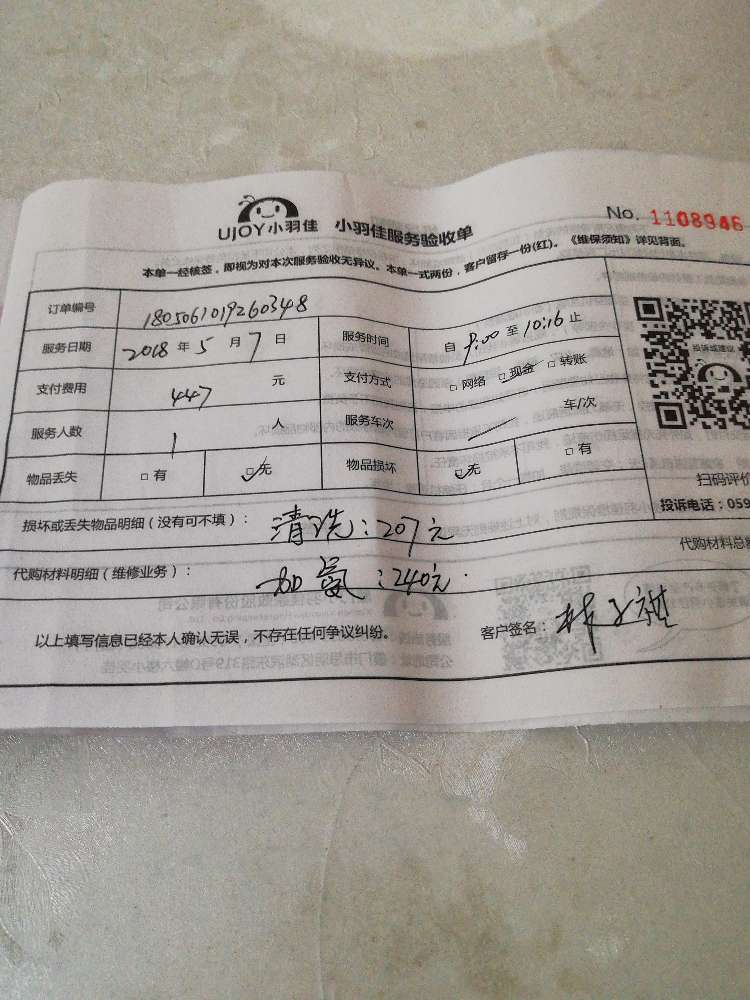 UJOY小羽佳 小羽佳服务验收单 No. 1108946
本单一经核签,即视为对本次服务验收无异议。本单一式两份,客户留存一份(红)。《维保须知》详见背面。
订单编号 1805061019260348
服务日期 2018 年 5 月 7 日 服务时间 自 9:00 至 10:16 止
支付费用 447 元 支付方式 □网络 □现金 □转账
服务人数 1 人 服务车次 车/次
物品丢失 □有 □无 物品损坏 □无 □有
投诉或建议
扫码评价
投诉电话:059
损坏或丢失物品明细(没有可不填): 清洗:207元
代购材料总
代购材料明细(维修业务): 加氨:240元.
以上填写信息已经本人确认无误,不存在任何争议纠纷。 客户签名: